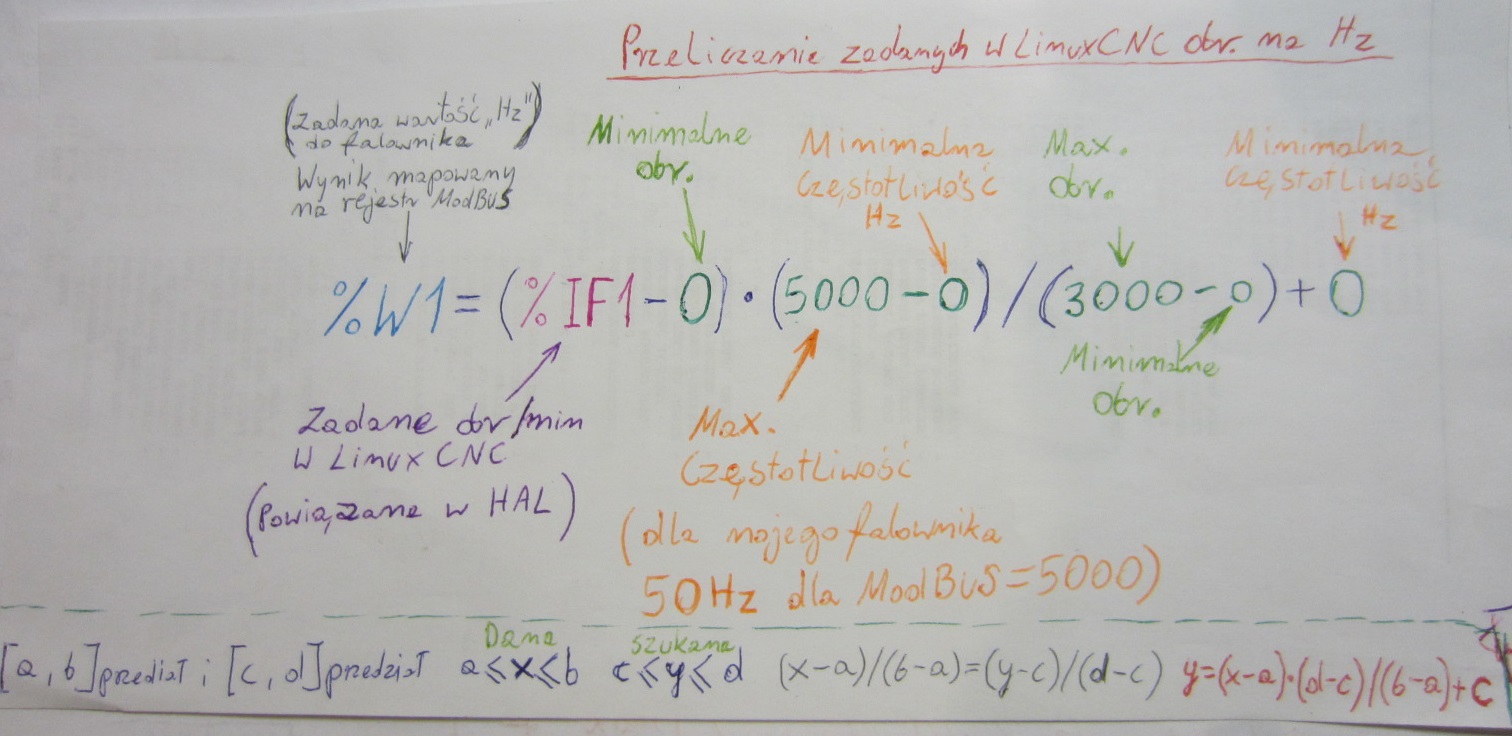 Przeliczanie zadanych w LinuxCNC obr. na Hz
(Zadana wartość „Hz")
do falownika
Wynik mapowany
na rejestr ModBUS
Minimalne
obr.
Minimalna
Częstotliwość
Hz
Max.
obr.
Minimalna
Częstotliwość
Hz
%W1=(%IF1-0)·(5000-0)/(3000-0)+0
Zadane obr/min
w LinuxCNC
(Powiązane w HAL)
Max.
Częstotliwość
(dla mojego falownika
50Hz dla ModBUS=5000)
Minimalne
Obr.
Dana
Szukana
[a, b]przediał i [c, d]przedział a⩽x⩽b c⩽y⩽d (x-a)/(b-a)=(y-c)/(d-c) y=(x-a)·(d-c)/(b-a)+c